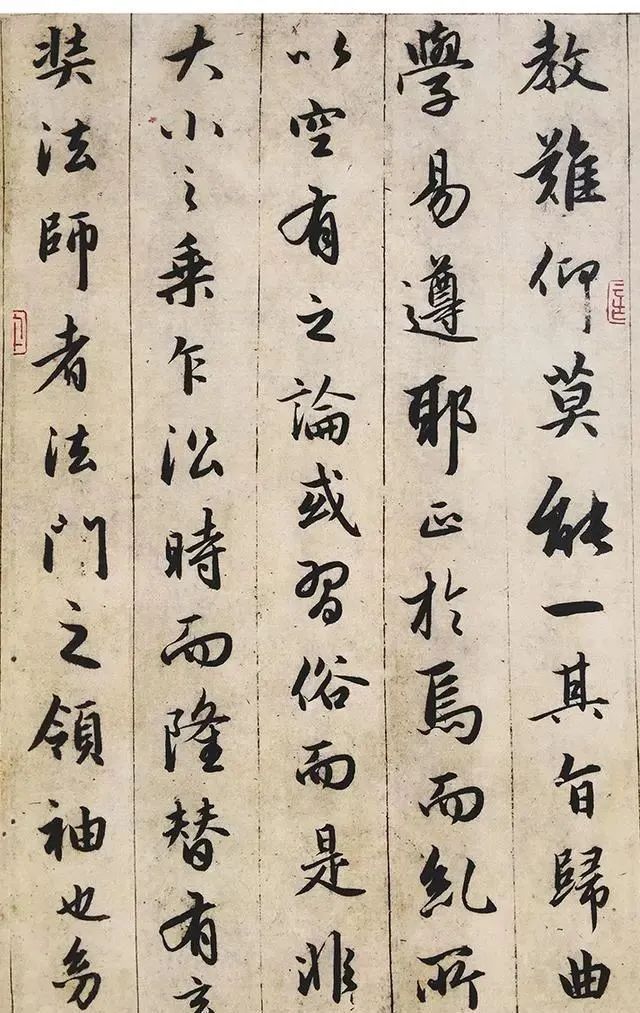 教難仰莫能一其旨歸曲
學易遵耶正於焉而糺所
以空有之論或習俗而是非
大小之乘乍㳂時而隆替有玄
奘法師者法門之領袖也幼